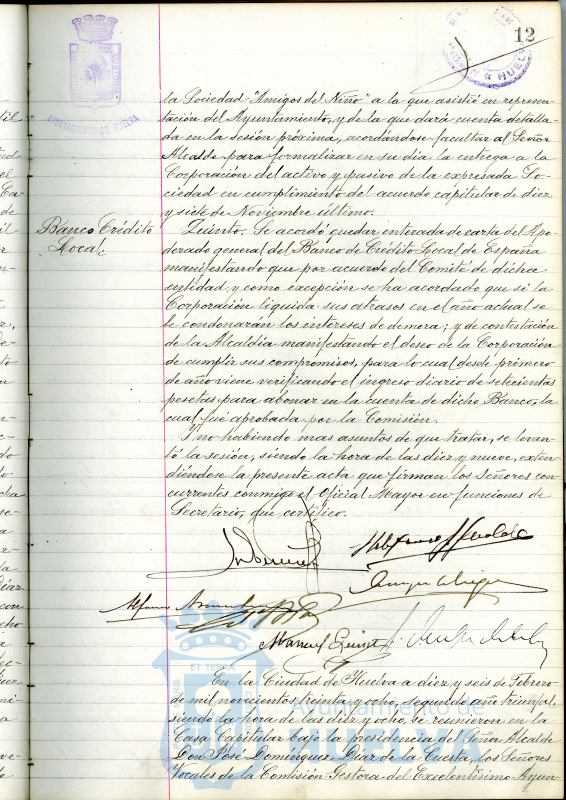 12
AYUNTAMIENTO DE HUELVA
HUELVA
la Sociedad "Amigos del Niño" a la que asistió en represen-
tación del Ayuntamiento, y de la que dará cuenta detalla-
da en la sesión próxima, acordándose facultar al Señor
Alcalde para formalizar en su dia la entrega a la
Corporación del activo y pasivo de la expresada So-
ciedad en cumplimiento del acuerdo capitular de diez
y siete de Noviembre último.
Banco Crédito
Local
Quinto. Se acordó quedar enterada de carta del Apo-
derado general del Banco de Crédito Local de España
manifestando que por acuerdo del Comité de dicha
entidad, y como excepción se ha acordado que si la
Corporación liquida sus atrasos en el año actual se
le condonarán los intereses de demora; y de contestación
de la Alcaldia manifestando el deseo de la Corporación
de cumplir sus compromisos, para lo cual desde primero
de año viene verificando el ingreso diario de setecientas
pesetas para abonar en la cuenta de dicho Banco, la
cual fué aprobada por la Comisión.
Y no habiendo mas asuntos de que tratar, se levan-
tó la sesión, siendo la hora de las diez y nueve, exten-
diéndose la presente acta que firman los Señores con-
currentes conmigo el Oficial Mayor en funciones de
Secretario, que certifico.
Manuel
En la Ciudad de Huelva a diez y seis de Febrero
de mil novecientos treinta y ocho, segundo año triunfal,
siendo la hora de las diez y ocho, se reunieron en la
Casa Capitular bajo la presidencia del Señor Alcalde
Don José Dominguez Diaz de la Cuesta, los Señores
Vocales de la Comisión Gestora del Excelentísimo Ayun-
Ayuntamiento de
HUELVA